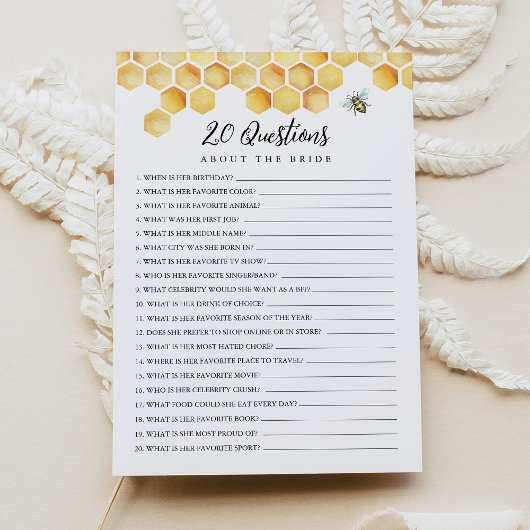 20 Questions
ABOUT THE BRIDE
1. WHEN IS HER BIRTHDAY?
2. WHAT IS HER FAVORITE COLOR?
3. WHAT IS HER FAVORITE ANIMAL?
4. WHAT WAS HER FIRST JOB?
5. WHAT IS HER MIDDLE NAME?
6. WHAT CITY WAS SHE BORN IN?
7. WHAT IS HER FAVORITE TV SHOW?
8. WHO IS HER FAVORITE SINGER/BAND?
9. WHAT CELEBRITY WOULD SHE WANT AS A BFF?
10. WHAT IS HER DRINK OF CHOICE?
11. WHAT IS HER FAVORITE SEASON OF THE YEAR?
12. DOES SHE PREFER TO SHOP ONLINE OR IN STORE?
13. WHAT IS HER MOST HATED CHORE?
14. WHERE IS HER FAVORITE PLACE TO TRAVEL?
15. WHAT IS HER FAVORITE MOVIE?
16. WHO IS HER CELEBRITY CRUSH?
17. WHAT FOOD COULD SHE EAT EVERY DAY?
18. WHAT IS HER FAVORITE BOOK?
19. WHAT IS SHE MOST PROUD OF?
20. WHAT IS HER FAVORITE SPORT?